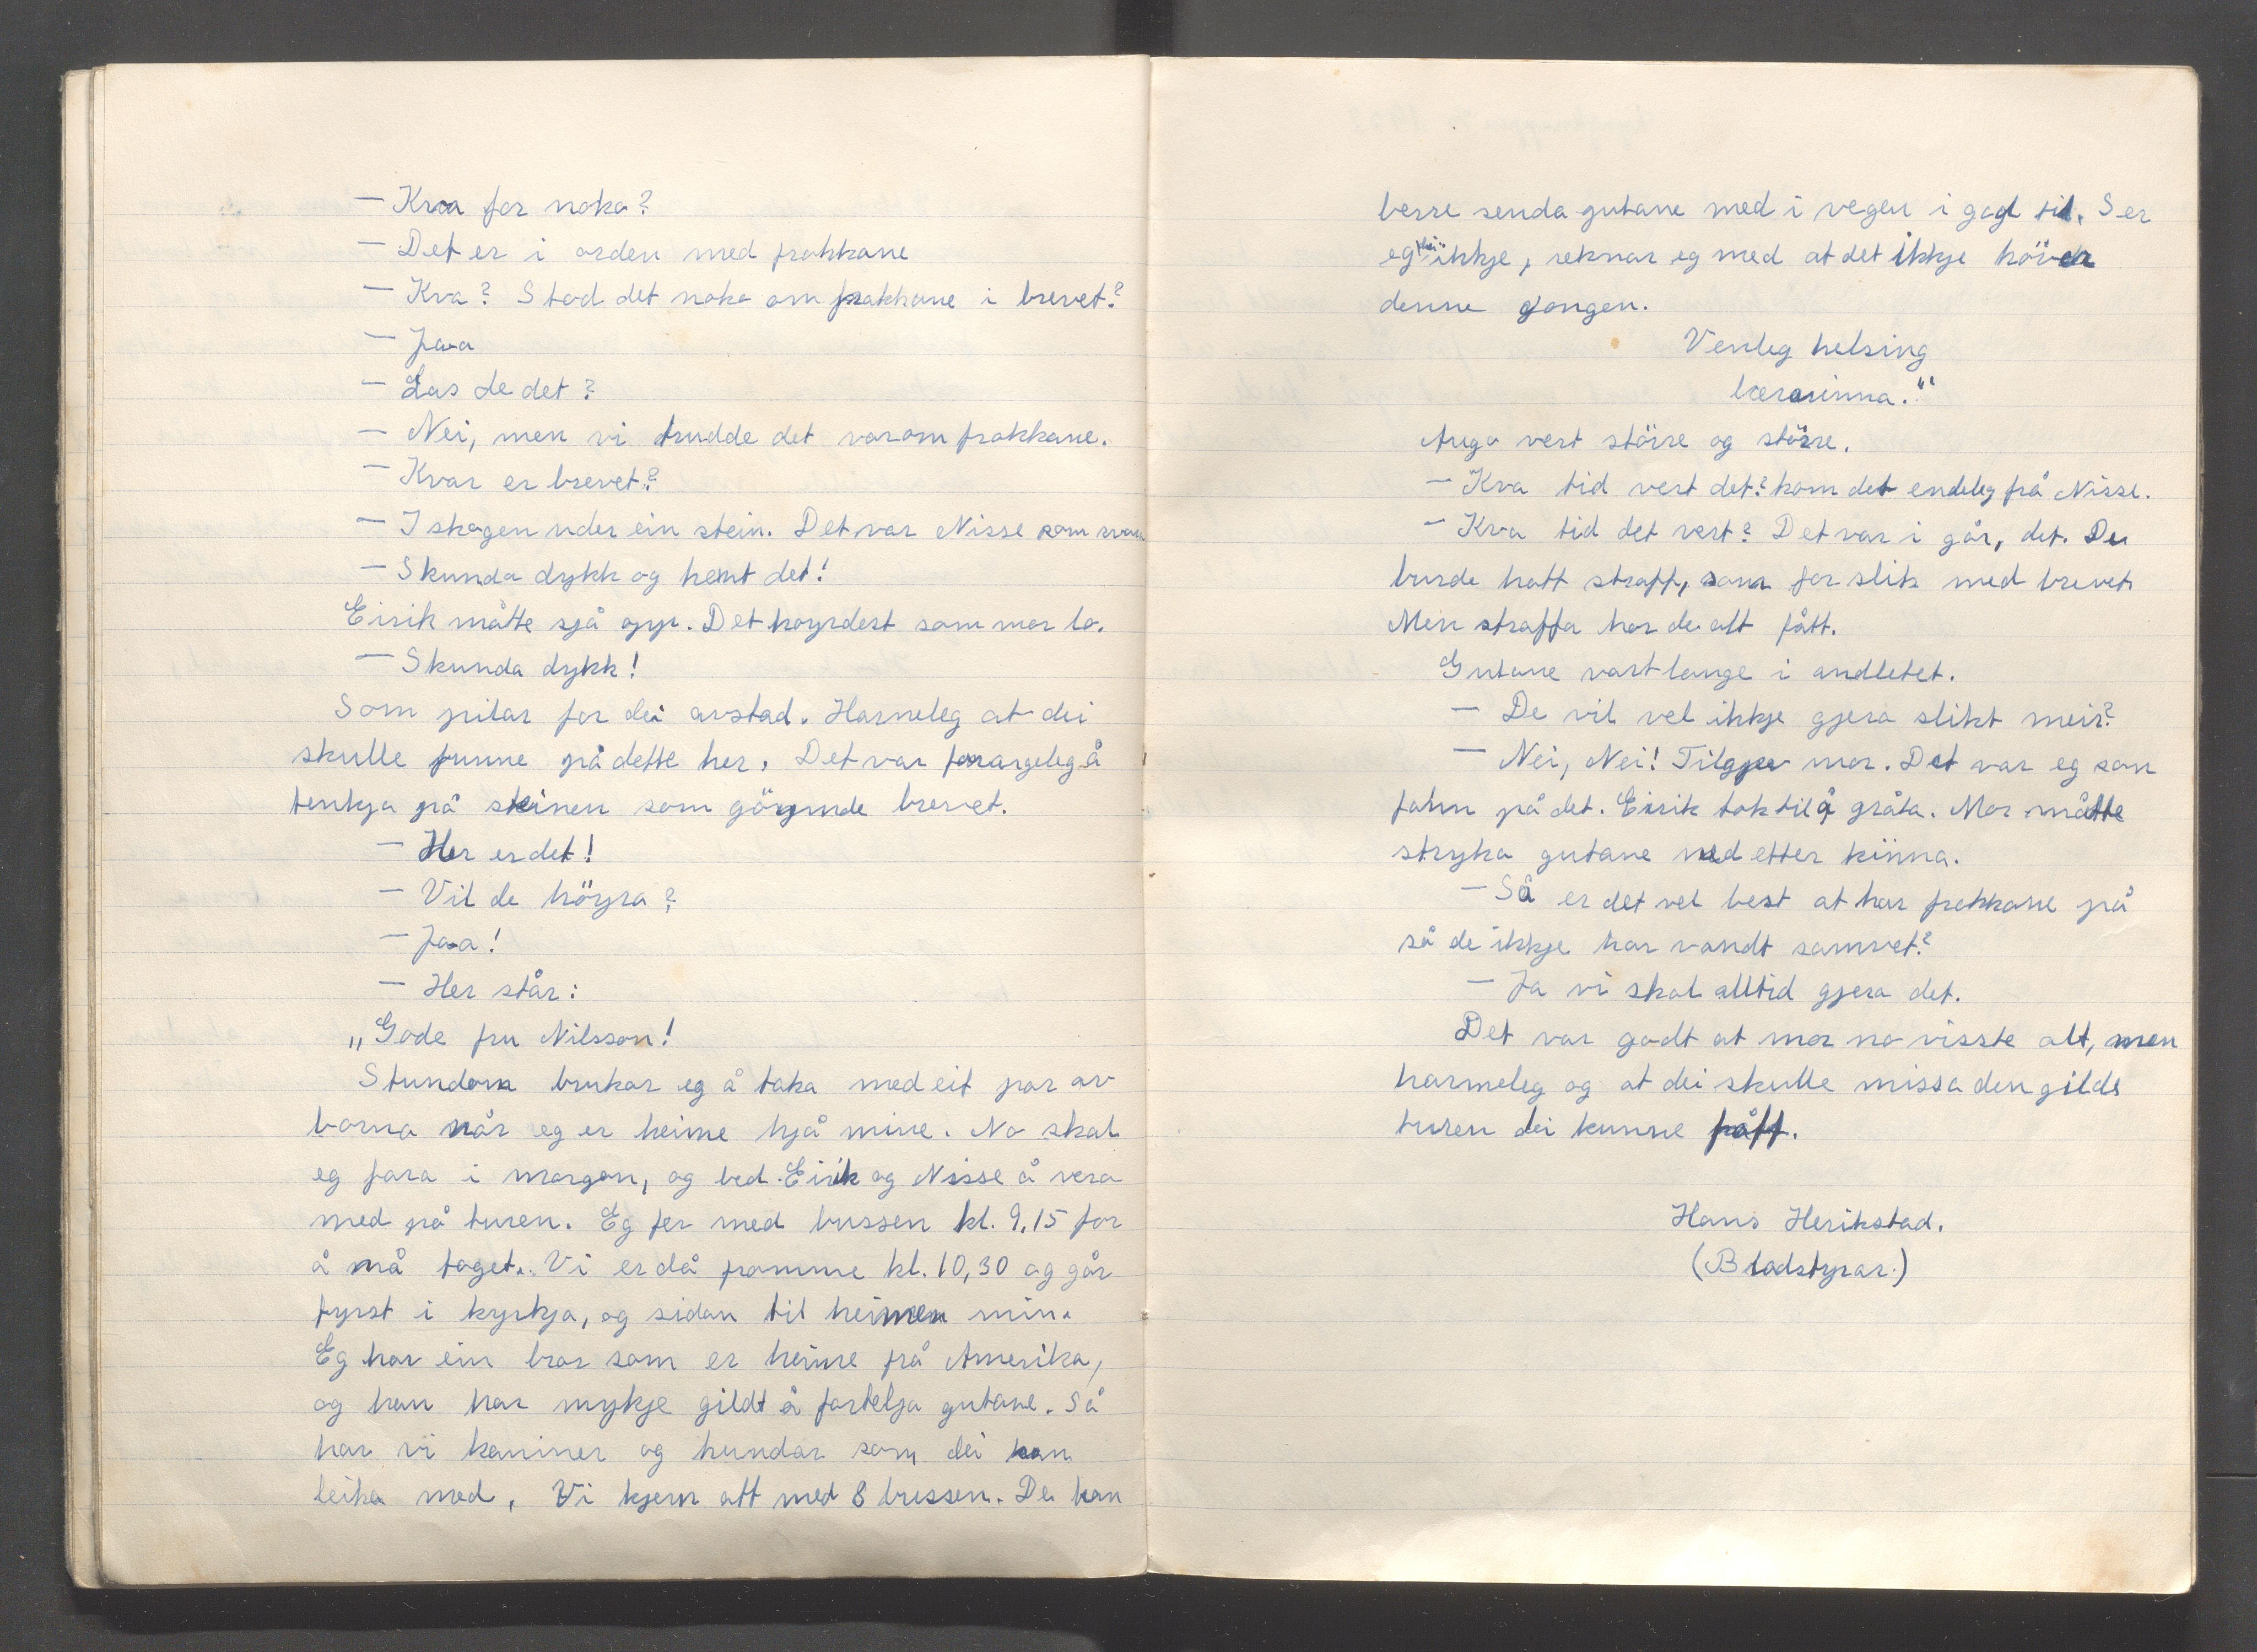 — Kva for noko?
— Det er i orden med frakkane
— Kva? Stod det noko om frakkane i brevet?
— Ja-a
— Las de det?
— Nei, men vi trudde det var om frakkane.
— Kvar er brevet?
— I skogen uder ein stein. Det var Nisse som svara
— Skunda dykk og hemt det!
Eirik måtte sjå opp. Det høyrdest som mor lo.
— Skunda dykk!
Som pilar for dei avstad. Harmeleg at dei
skulle funne på dette her. Det var forargeleg å
tenkja på steinen som göymde brevet.
— Her er det!
— Vil de höyra?
— Ja-a!
— Her står:
„Gode fru Nilsson!
Stundom brukar eg å taka med eit par av
borna når eg er heime hjå mine. No skal
eg fara i morgon, og bed Eirik og Nisse å vera
med på turen. Eg fer med bussen kl. 9.15 for
å nå toget. Vi er då framme kl. 10,30 og går
fyrst i kyrkja, og sidan til heimen min.
Eg har ein bror som er heime frå Amerika,
og han har mykje gildt å fortelja gutane. Så
har vi kaniner og hundar som dei kan
leika med. Vi kjem att med 8 bussen. De kan
berre senda gutane med i vegen i god tid. Ser
eg dei ikkje, reknar eg med at det ikkje höver
denne gongen.
Venleg helsing
lærarinna."
Auga vert större og större.
— Kva tid vert det? kom det endeleg frå Nisse.
— Kva tid det vert? Det var i går, det. De
burde hatt straff, som for slik med brevet.
Men straffa har de alt fått.
Gutane vart lange i andletet.
— De vil vel ikkje gjera slikt meir?
— Nei, Nei! Tilgjev mor. Det var eg som
fann på det. Eirik tok til å gråta. Mor måtte
stryka gutane ned etter kinna.
— Så er det vel best at har frakkane på
så de ikkje har vondt samvet?
— Ja vi skal alltid gjera det.
Det var godt at mor no visste alt, men
harmeleg og at dei skulle missa den gilde
turen dei kunne fått.
Hans Herikstad.
(Bladstyrar.)